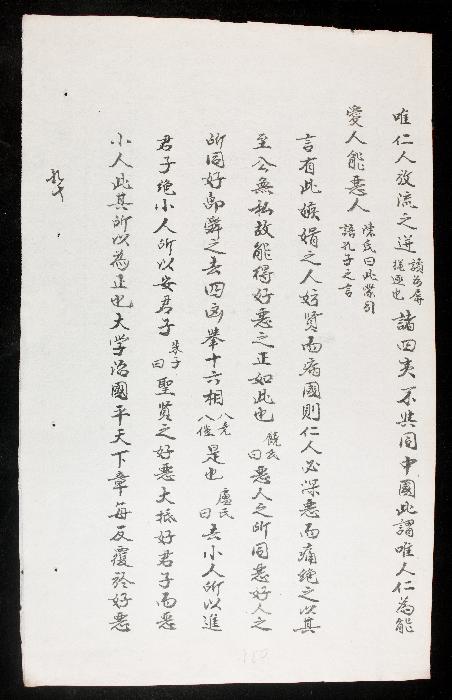 唯仁人放流之迸讀為屏猶逐也諸四夷不與同中國此謂唯人仁為能
愛人能惡人陳氏曰此蒙引語孔子之言
言有此媢嫉之人妨賢而病國則仁人必深惡而痛絕之以其
至公無私故能得好惡之正如此也饒氏曰惡人之所同惡好人之
所同好即舜之去四凶舉十六相八元八愷是也盧氏曰去小人所以進
君子絶小人所以安君子朱子曰聖賢之好惡大抵好君子而惡
小人此其所以為正也大学治國平天下章每反覆於好惡